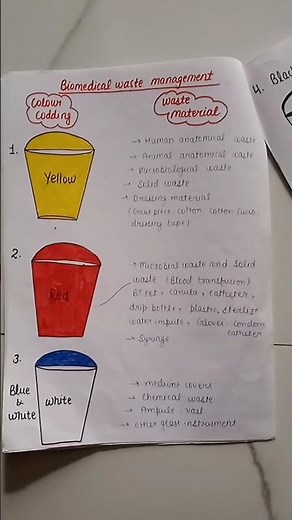 Biomedical waste management
Colour
Codding
waste
material
4. Black
1.
Yellow
→ Human anatomical waste
→ Animal anatomical waste
→ Microbiological waste
→ Solid waste
→ Dressing material
(Gauz piece cotton, cotton swab,
dressing tape)
2.
Red
• Microbial waste and Solid
waste (Blood transfusion)
BT set, canula, catheter,
drip bottle, plastic, sterlize
water impule, Gloves condom
catheter
→ Syringe
3.
Blue
&
White
White
→ medicine covers
→ Chemical waste
→ Ampule vail
→ other glass instrument